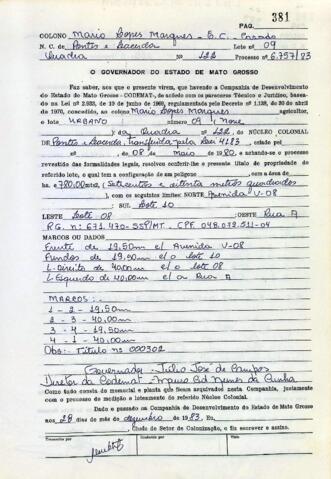 381
PAG.
COLONO Mario Lopes Marques - E.C. - Casado
N. C. de Pontes e Lacerda Lote nº 09
Quadra Nº 122 Processo nº 6.757/83
O GOVERNADOR DO ESTADO DE MATO GROSSO
Faz saber, aos que o presente virem, que havendo a Companhia de Desenvolvimento
do Estado de Mato Grosso - CODEMAT, de acôrdo com os pareceres Técnico e Jurídico, baseados
na Lei nº 2.933, de 19 de junho de 1969, regulamentado pelo Decreto nº 1.138, de 30 de abril
de 1970, concedido, ao colono Mario Lopes Marques agricultor,
o lote URBANO número 09 (Nove
) da Quadra nº 122, DO NÚCLEO COLONIAL
DE Pontes e Lacerda, transferida pela Lei 4183, criado pel
nº , de 08 de Maio de 1980 e achando-se o processo
revestido das formalidades legais, resolveu conferir-lhe o presente título de propriedade do
referido lote, o qual tem a configuração de um polígono com a área de
ha e 780,00mts2, (Setecentos e oitenta metros quadrados
), com os seguintes limites: NORTE Avenida V-08
SUL Lote 10
LESTE Lote 08 ; OESTE Rua A
R.G. nº: 671.470-SSP/MT. CPF. 048.072.511-04
MARCOS OU DADOS
Frente de 19,50m c/ Avenida V-08
Fundos de 19,50m c/ o lote 10
L. Direito de 40,00m c/ o lote 08
L. Esquerdo de 40,00m c/ a Rua A
MARCOS:-
1 - 2 - 19,50m
2 - 3 - 40,00m
3 - 4 - 19,50m
4 - 1 - 40,00m
Obs:- Título nº 000302
Governador - Júlio José de Campos
Diretor da Codemat - Mauro Cid Nunes da Cunha
Como tudo consta do memorial e planta que ficam arquivados nesta Companhia, juntamente
com o processo de medição e loteamento do referido Núcleo Colonial.
Dado e passado na Companhia de Desenvolvimento do Estado de Mato Grosso
aos 28 dias do mês de dezembro de 1983. Eu,
, Chefe do Setor de Colonização, o fiz escrever e assino.
Transcrito por
Conferido
Visto